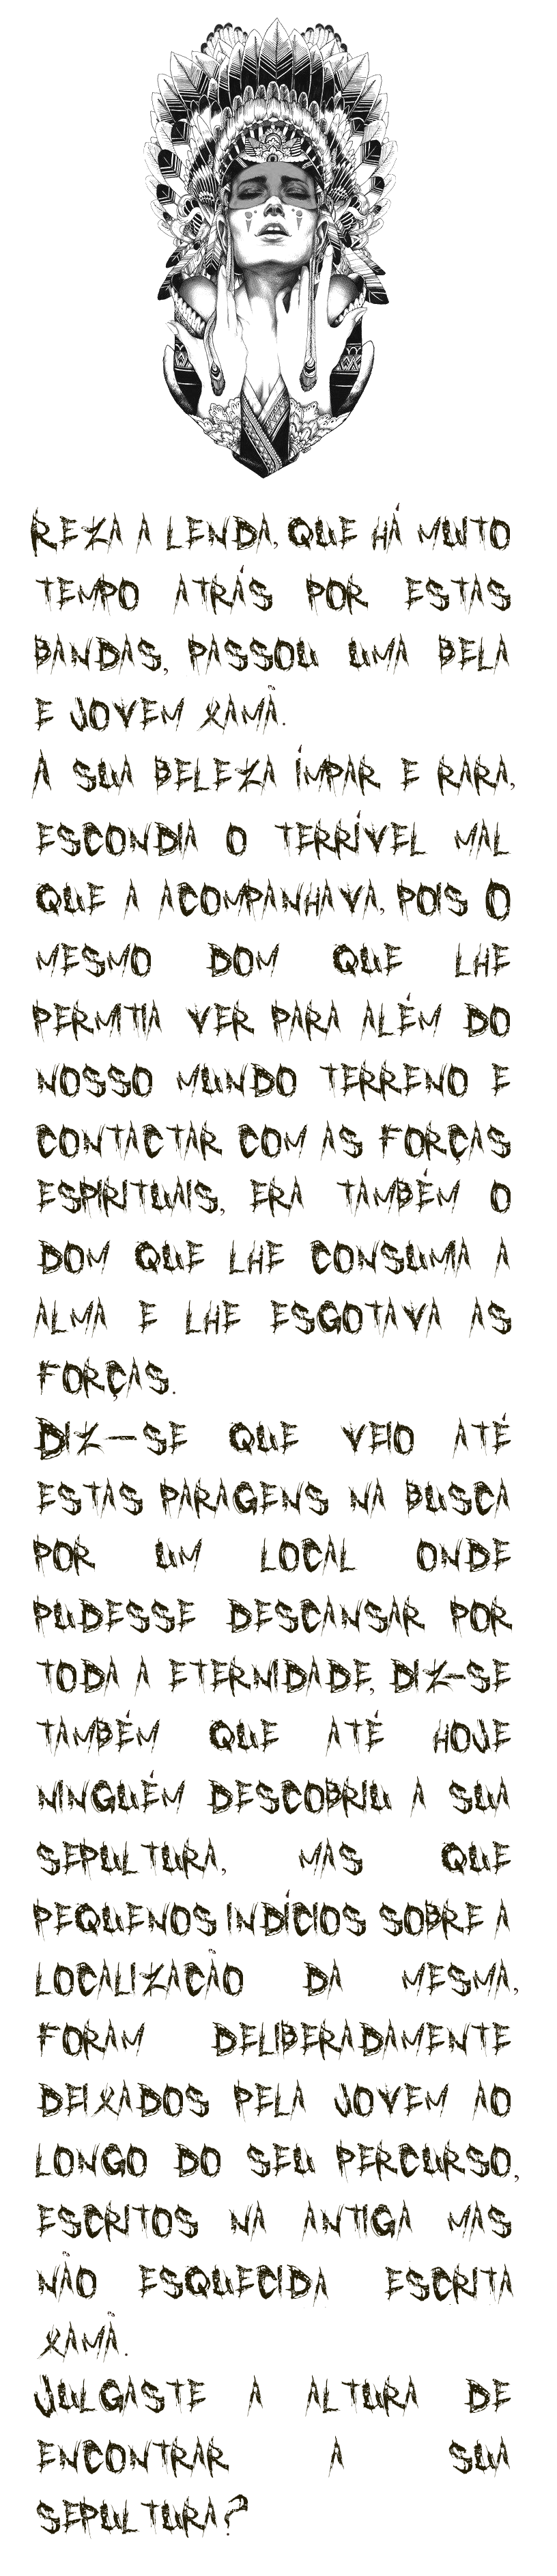 REZA A LENDA, QUE HÁ MUITO
TEMPO ATRÁS POR ESTAS
BANDAS, PASSOU UMA BELA
E JOVEM XAMÃ.
A SUA BELEZA ÍMPAR E RARA,
ESCONDIA O TERRÍVEL MAL
QUE A ACOMPANHAVA, POIS O
MESMO DOM QUE LHE
PERMITIA VER PARA ALÉM DO
NOSSO MUNDO TERRENO E
CONTACTAR COM AS FORÇAS
ESPIRITUAIS, ERA TAMBÉM O
DOM QUE LHE CONSUMIA A
ALMA E LHE ESGOTAVA AS
FORÇAS.
DIZ-SE QUE VEIO ATÉ
ESTAS PARAGENS NA BUSCA
POR UM LOCAL ONDE
PUDESSE DESCANSAR POR
TODA A ETERNIDADE, DIZ-SE
TAMBÉM QUE ATÉ HOJE
NINGUÉM DESCOBRIU A SUA
SEPULTURA, MAS QUE
PEQUENOS INDÍCIOS SOBRE A
LOCALIZACÃO DA MESMA,
FORAM DELIBERADAMENTE
DEIXADOS PELA JOVEM AO
LONGO DO SEU PERCURSO,
ESCRITOS NA ANTIGA MAS
NÃO ESQUECIDA ESCRITA
XAMÃ.
JULGASTE A ALTURA DE
ENCONTRAR A SUA
SEPULTURA?